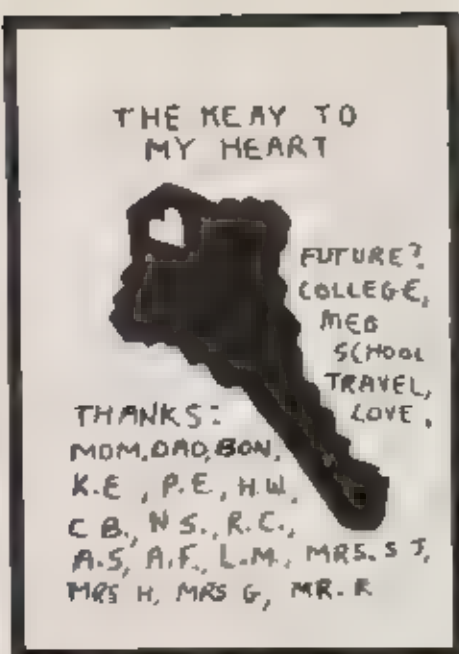 THE KEAY TO
MY HEART
FUTURE?
COLLEGE,
MED
SCHOOL
TRAVEL,
LOVE.
THANKS:
MOM, DAD, BON,
K.E, P.E, H.W,
C B., N S., R.C.,
A.S, A.F., L.M., MRS. S J,
MRS H, MRS G, MR. K